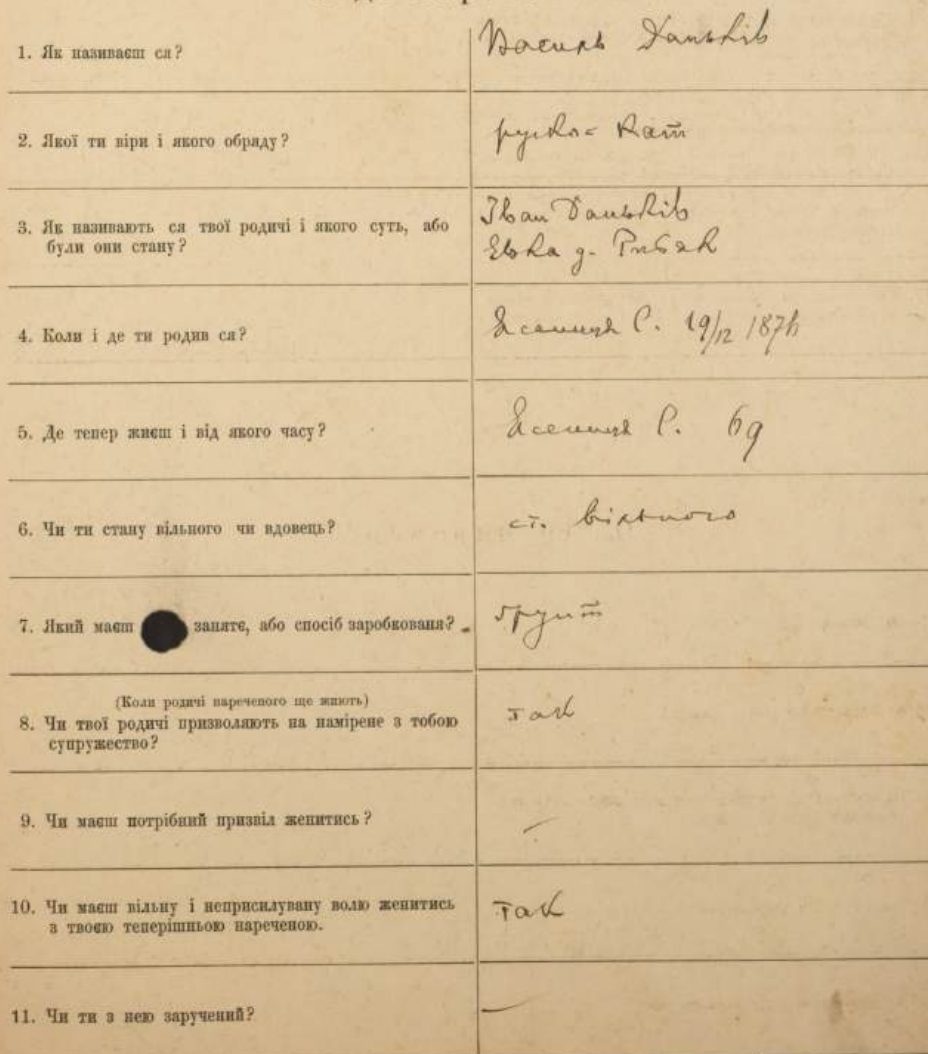 1. Як називаєш ся?
Василь Даньків
2. Якої ти віри і якого обряду?
руско-кат
3. Як називають ся твої родичі і якого суть, або
були они стану?
Іван Даньків
Евка д.
4. Коли і де ти родив ся?
Ясениця С. 19/12 187
5. Де тепер жиєш і від якого часу?
Ясениця С. 69
6. Чи ти стану вільного чи вдовець?
ст. вільного
7. Який маєш занятє, або спосіб заробкованя?
ґрунт
(Коли родичі нареченого ще жиють)
8. Чи твої родичі призволяють на намірене з тобою
супружество?
так
9. Чи маєш потрібний призвіл женитись?
10. Чи маєш вільну і неприсилувану волю женитись
з твоєю теперішньою нареченою.
так
11. Чи ти з нею заручений?